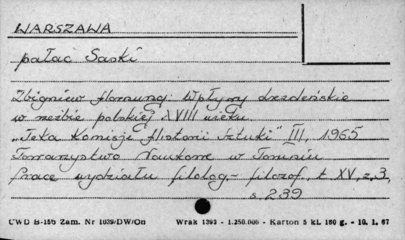 WARSZAWA
pałac Saski
Zbigniew Hornung: Wpływy drezdeńskie
w rzeźbie polskiej XVIII wieku
„Teka Komisji Historii Sztuki" III, 1965
Towarzystwo Naukowe w Toruniu
Prace wydziału filolog.- filozof., t. XV, z, 3,
s. 239
CWD B-156 Zam. Nr 1039/DW/On Wrak 1392 - 1.250.000 - Karton 5 kl. 180 g. - 10. 1. 67